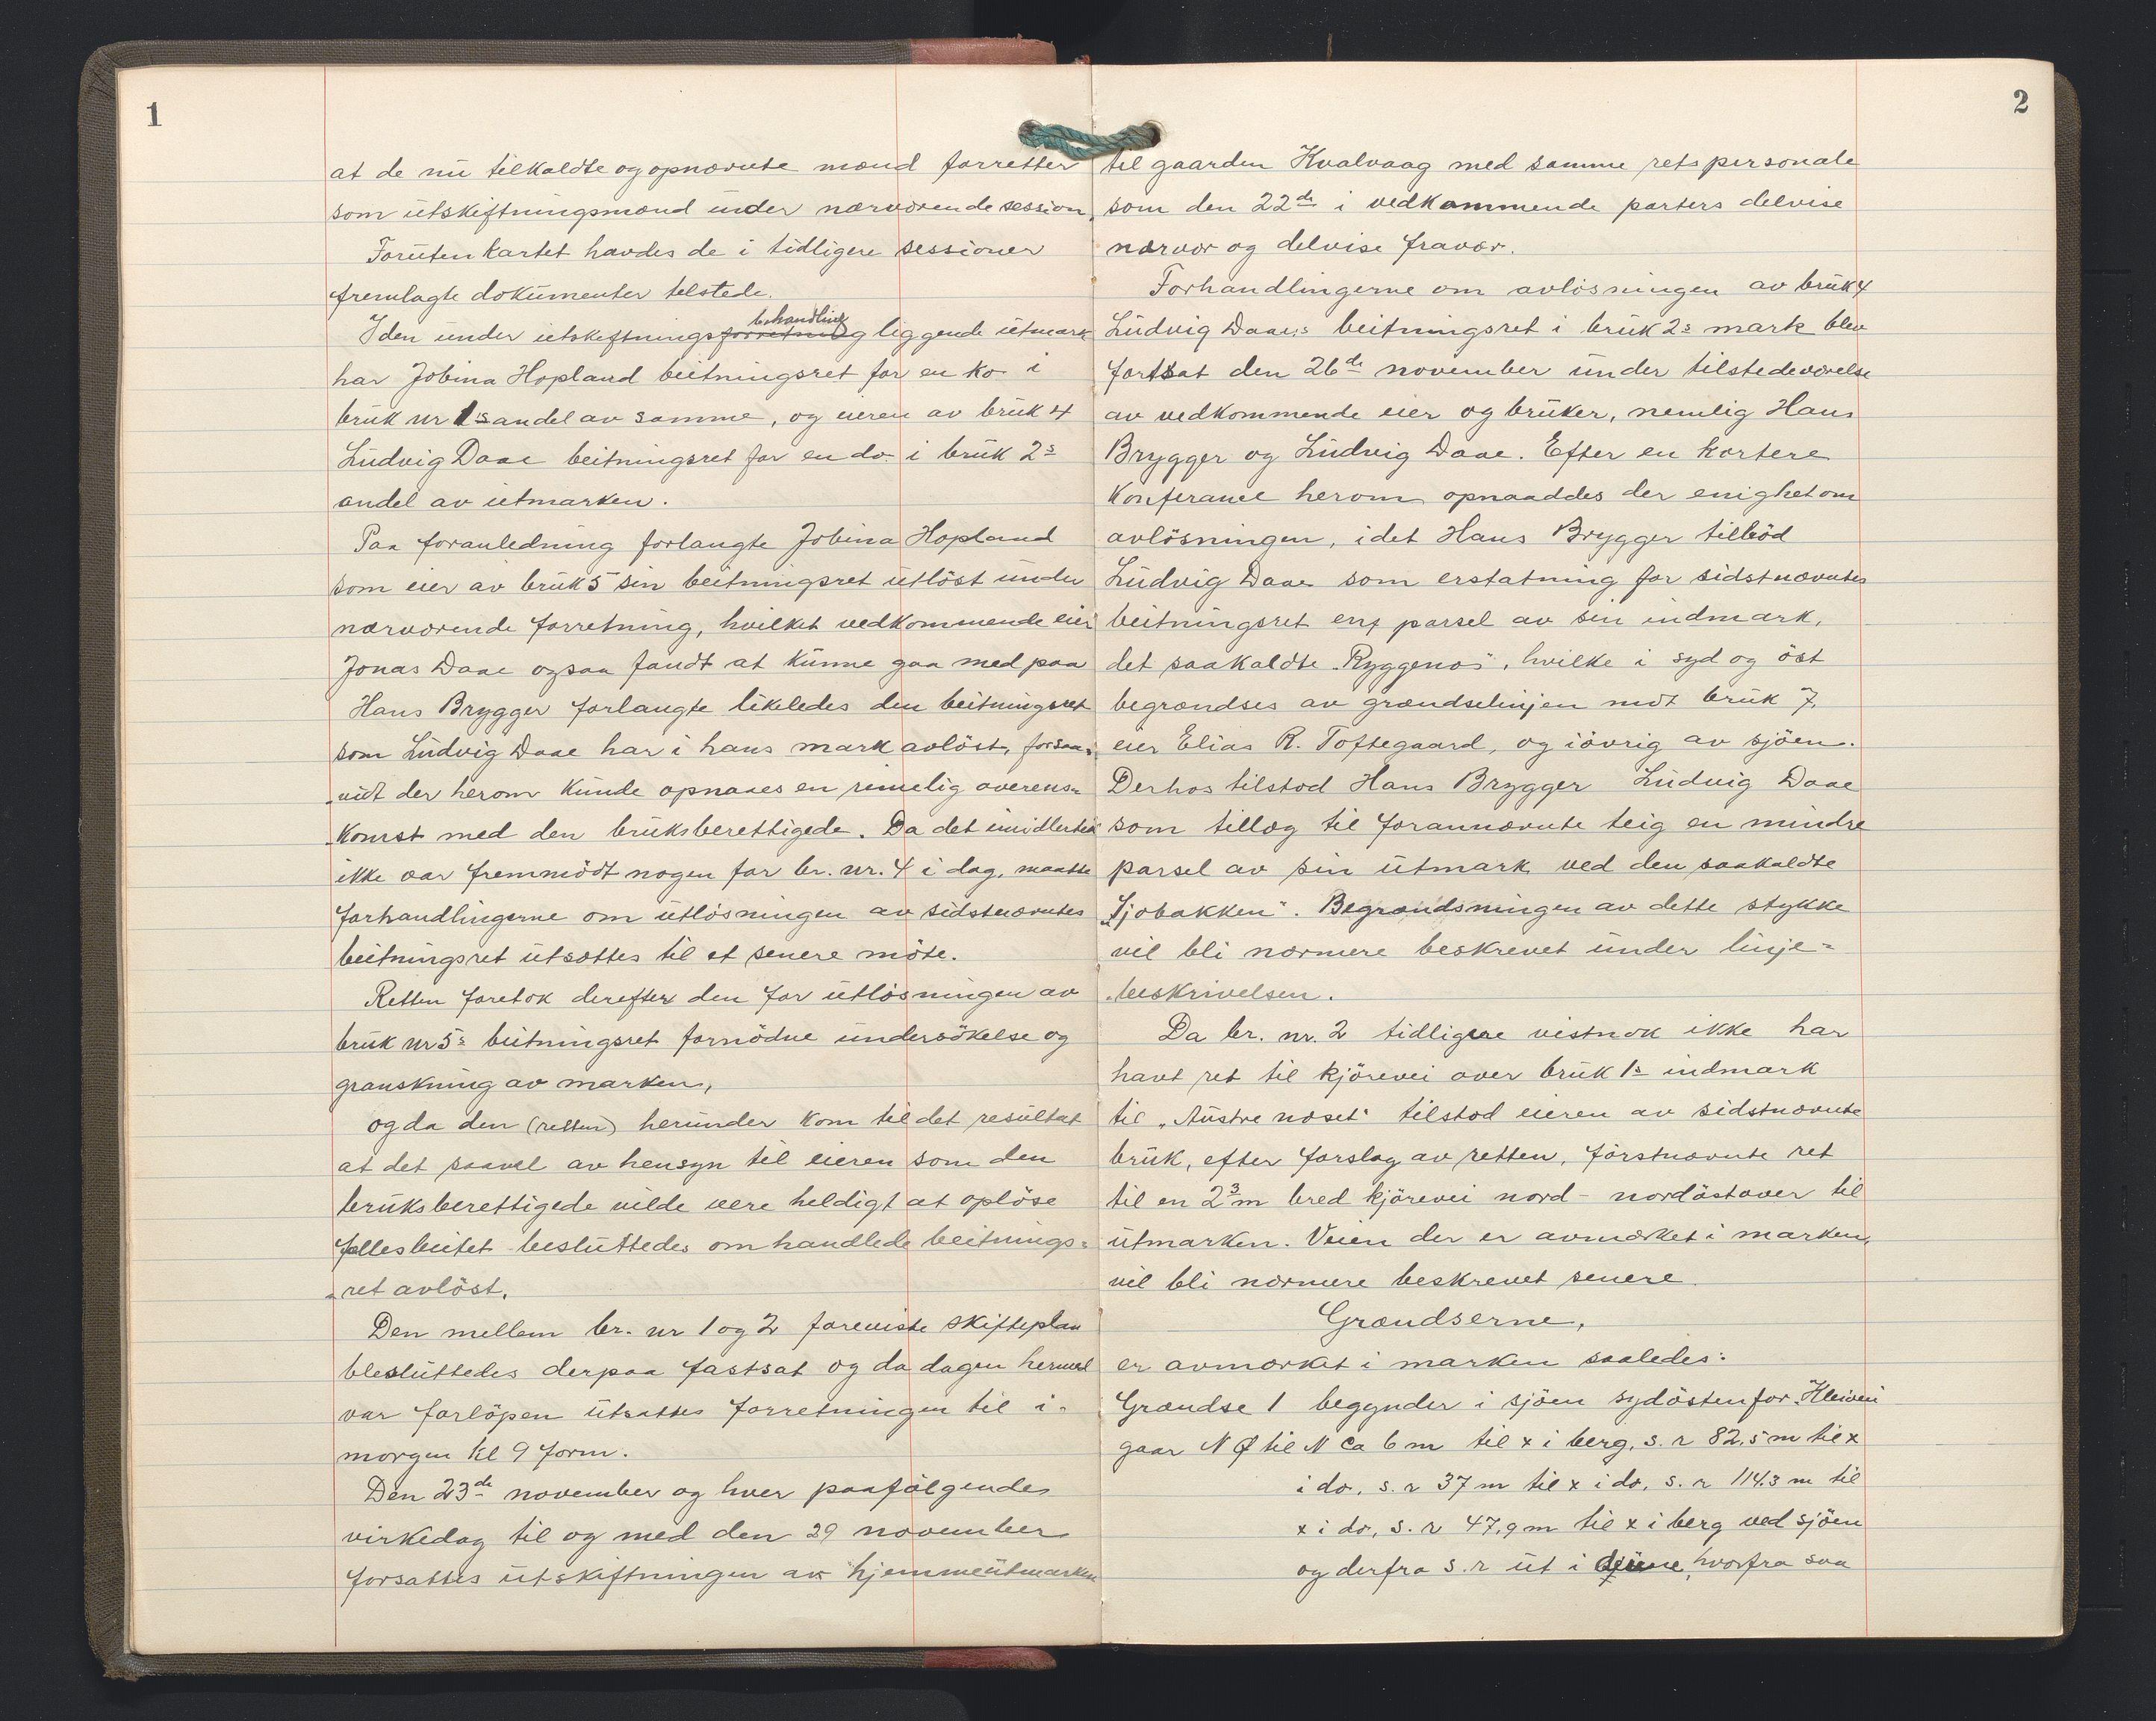 1
at de nu tilkaldte og opnævnte mænd forretter
som utskiftningsmænd under nærværende session.
Foruten kartet havdes de i tidligere sessioner
fremlagte dokumenter tilstede.
behandling
I den under utskiftningsforretning liggende utmark
har Jobina Hopland beitningsret for en ko i
bruk nr 1's andel av samme, og eieren av bruk 4
Ludvig Daae beitningsret for en do. i bruk 2s
andel av utmarken.
Paa foranledning forlangte Jobina Hopland
som eier av bruk 5 sin beitningsret utlöst under
nærværende forretning, hvilket vedkommende eier
Jonas Daae ogsaa fandt at kunne gaa med paa
Hans Brygger forlangte likeledes den beitningsret
som Ludvig Daae har i hans mark avlöst, forsaa-
-vidt der herom kunde opnaaes en rimelig overens-
-komst med den bruksberettigede. Da det imidlertid
ikke var fremmödt nogen for br. nr. 4 i dag, maatte
forhandlingerne om utlösningen av sidstnævntes
beitningsret utsættes til et senere möte.
Retten foretok derefter den for utlösningen av
bruk nr 5s beitningsret fornödne undersökelse og
granskning av marken,
og da den (retten) herunder kom til det resultat
at det saavel av hensyn til eieren som den
bruksberettigede vilde være heldigt at oplöse
fællesbeitet besluttedes omhandlede beitnings-
-ret avlöst.
Den mellem br. nr 1 og 2 foreviste skifteplan
blesluttedes derpaa fastsat og da dagen hermed
var forlöpen utsattes forretningen til i-
morgen kl 9 form.
Den 23de november og hver paafölgende
virkedag til og med den 29 november
forsattes utskiftningen av hjemmeutmarken
2
til gaarden Kvalvaag med samme retspersonale
som den 22de i vedkommende parters delvise
nærvær og delvise fravær.
Forhandlingerne om avlösningen av bruk 4
Ludvig Daaes beitningsret i bruk 2s mark blev
fortsat den 26de november under tilstedeværelse
av vedkommende eier og bruker, nemlig Hans
Brygger og Ludvig Daae. Efter en kortere
konferance herom opnaaddes der enighet om
avlösningen, idet Hans Brygger tilböd
Ludvig Daae som erstatning for sidstnævntes
beitningsret en parsel av sin indmark,
det saakaldte "Ryggenes", hvilke i syd og öst
begrændses av grændselinjen mot bruk 7,
eier Elias R. Toftegaard, og iövrig av sjöen.
Derhos tilstod Hans Brygger Ludvig Daae
som tillæg til forannævnte teig en mindre
parsel av sin utmark ved den saakaldte
"Sjobakken". Begrændsningen av dette stykke
vil bli nærmere beskrevet under linje-
-beskrivelsen.
Da br. nr. 2 tidligere vistnok ikke har
havt ret til kjörevei over bruk 1s indmark
til "Austre næset" tilstod eieren av sidstnævnte
bruk, efter forslag av retten, förstnævnte ret
til en 2,3 m bred kjörevei nord-nordöstover til
utmarken. Veien der er avmerket i marken,
vil bli nærmere beskrevet senere.
Grændserne,
er avmerket i marken saaledes:
Grændse 1 begynder i sjöen sydöstenfor "Kleiven"
gaar N Ø til N ca 6 m til x i berg, s. r 82,5 m til x
i do, s. r 37 m til x i do, s. r 114,3 m til
x i do, s. r 47,9 m til x i berg ved sjöen
og derfra s. r ut i denne, hvorfra saa